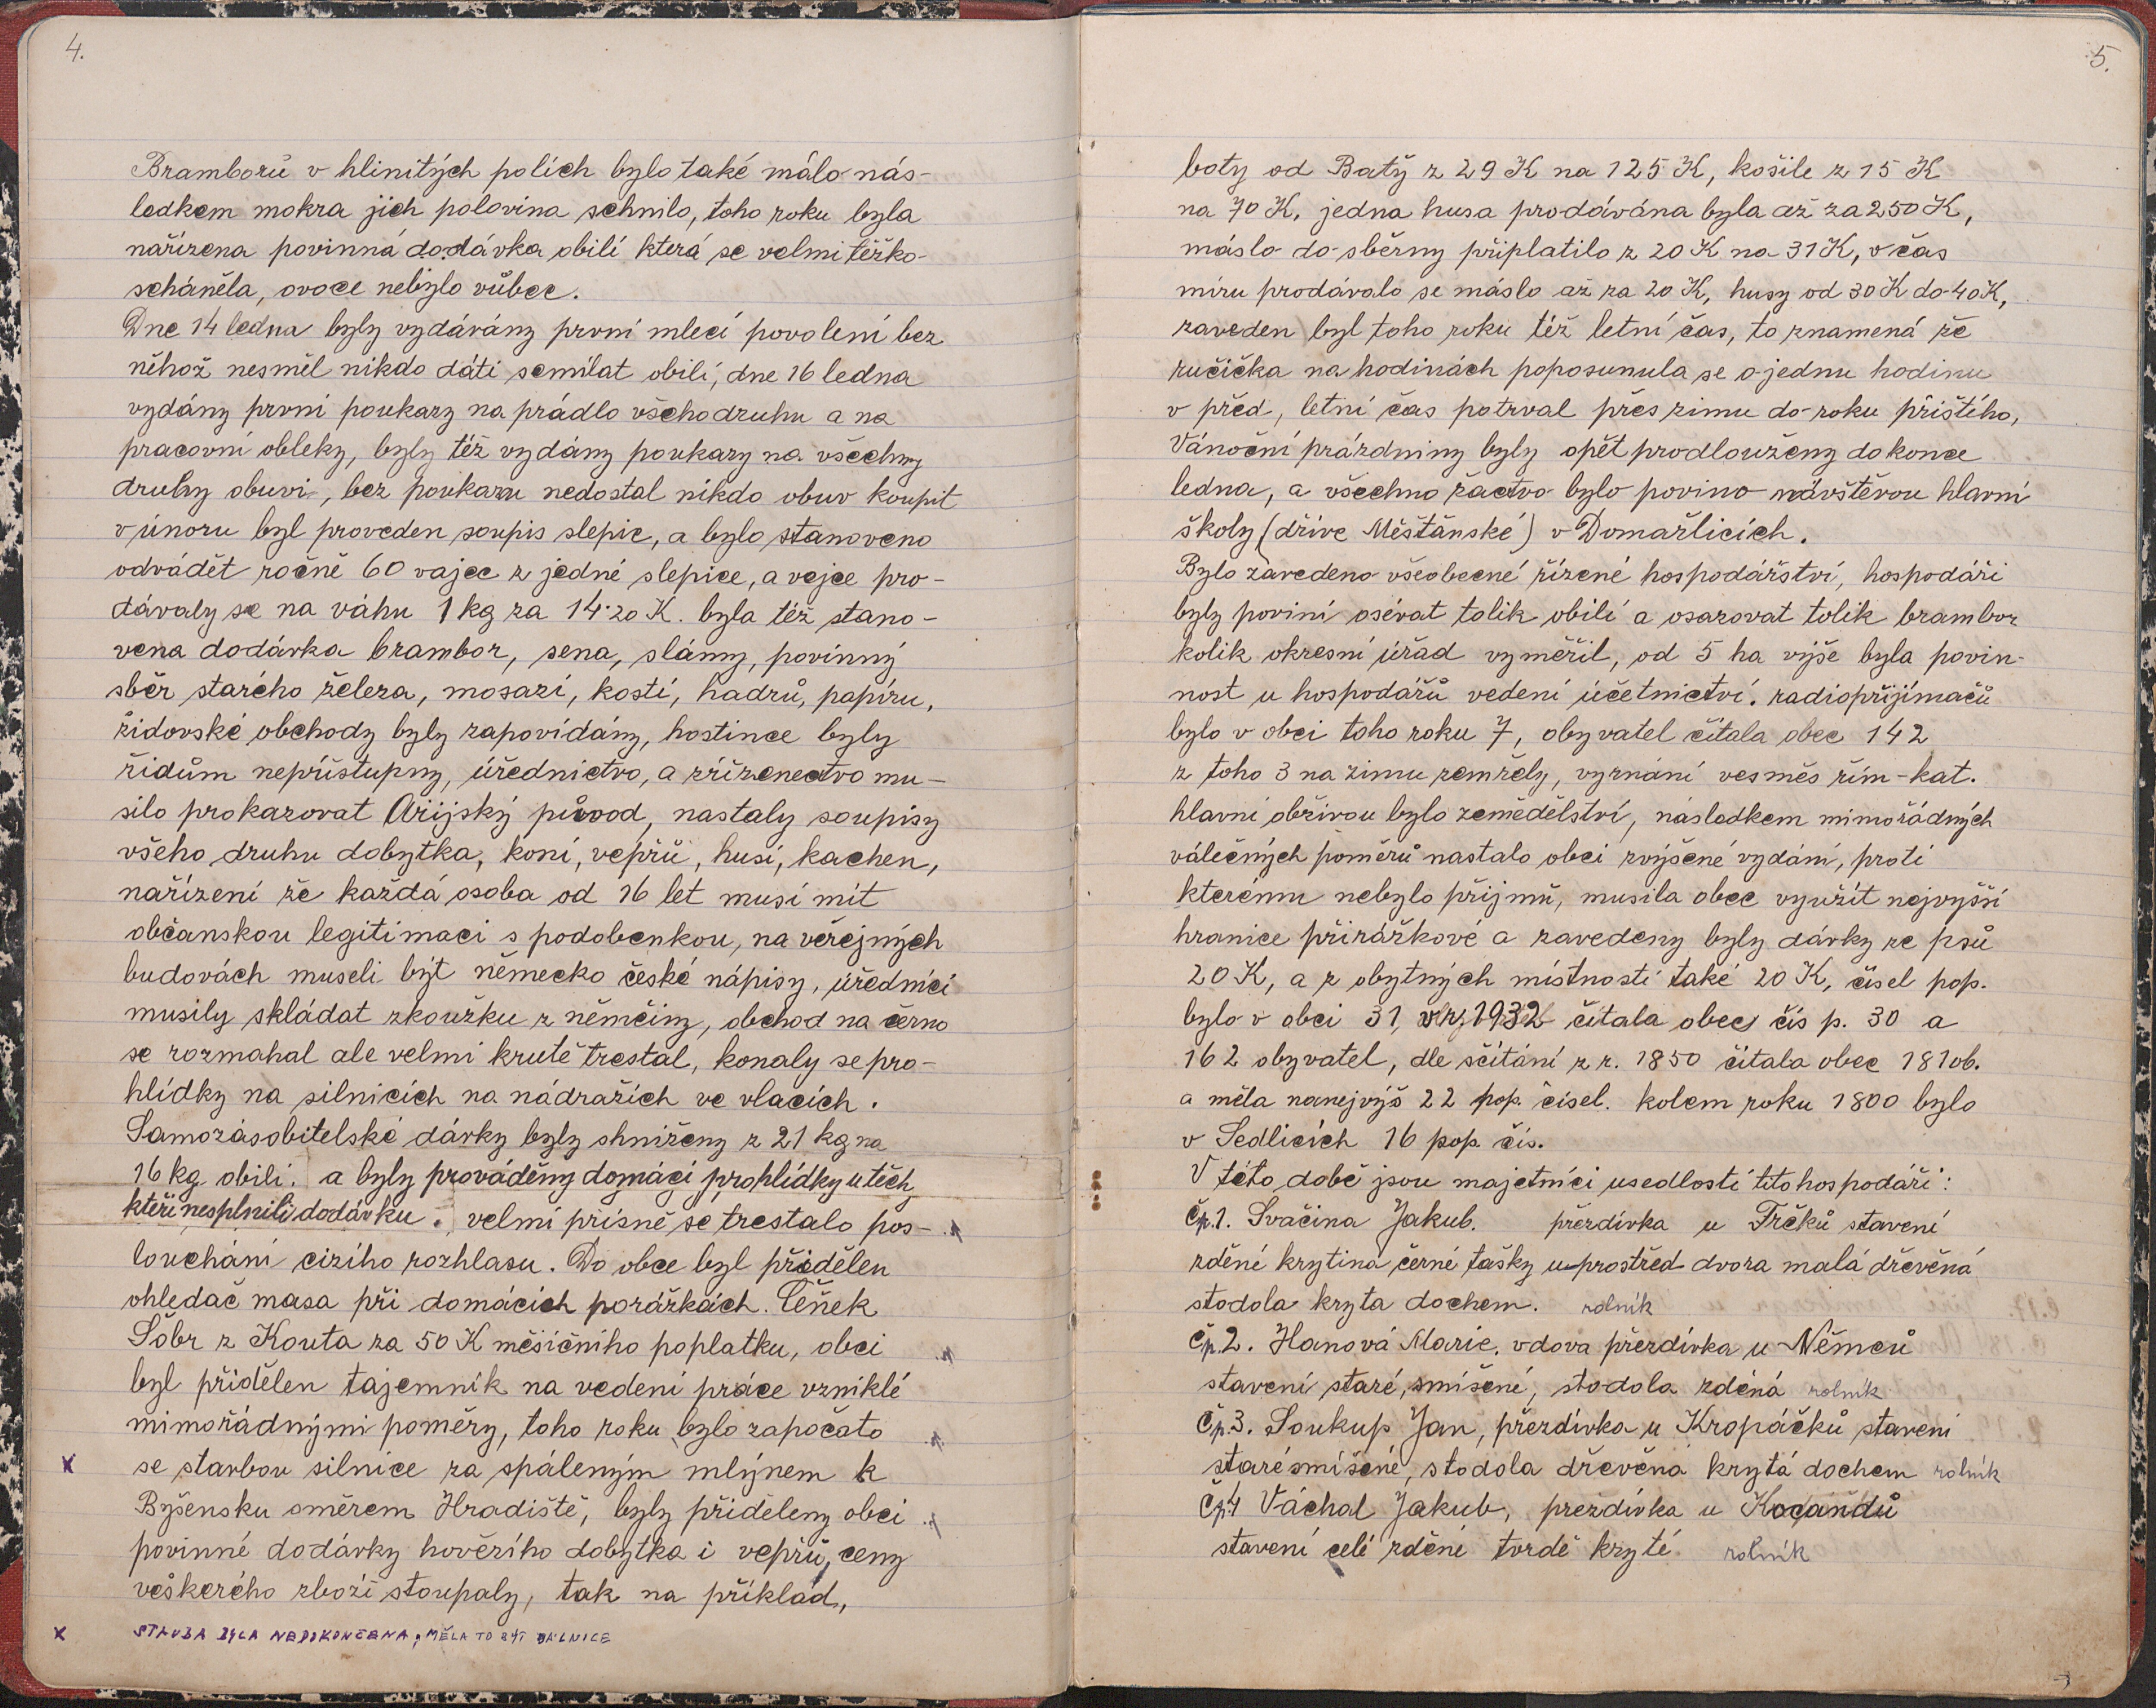 4.
Bramborů v hlinitých polích bylo také málo nás-
ledkem mokra jich polovina schnilo, toho roku byla
nařízena povinná dodávka obilí která se velmi těžko
scháněla, ovoce nebylo vůbec.
Dne 14 ledna byly vydávány první mlecí povolení bez
něhož nesměl nikdo dáti semílat obilí, dne 16 ledna
vydány první poukazy na prádlo všehodruhu a na
pracovní obleky, byly též vydány poukazy na všechny
druhy obuvi, bez poukazu nedostal nikdo obuv koupit
v únoru byl proveden soupis slepic, a bylo stanoveno
odvádět ročně 60 vajec z jedné slepice, a vejce pro-
dávaly se na váhu 1 kg za 14·20 K. byla též stano-
vena dodávka brambor, sena, slámy, povinný
sběr starého železa, mosazi, kostí, hadrů, papíru,
židovské obchody byly zapovídány, hostince byly
židům nepřístupny, úřednictvo, a zřízenectvo mu-
silo prokazovat Arijský původ, nastaly soupisy
všeho druhu dobytka, koní, vepřů, husí, kachen,
nařízení že každá osoba od 16 let musí mít
občanskou legitimaci s podobenkou, na veřejných
budovách museli být německo české nápisy, úředníci
musily skládat zkoužku z němčiny, obchod na černo
se rozmahal ale velmi krutě trestal, konaly se pro-
hlídky na silnicích na nádražích ve vlacích.
Samozásobitelské dávky byly shniženy z 21 kg na
16 kg obilí. a byly prováděny domácí prohlídky u těch
kteří nesplnili dodávku. velmi přísně se trestalo pos-
louchání cizího rozhlasu. Do obce byl přidělen
ohledač masa při domácích porážkách. Čeněk
Šobr z Kouta za 50 K měsíčního poplatku, obci
byl přidělen tajemník na vedení práce vzniklé
mimořádnými poměry, toho roku bylo započato
x se stavbou silnice za spáleným mlýnem k
Byšensku směrem Hradiště, byly přiděleny obci
povinné dodávky hovězího dobytka i vepřů, ceny
veškerého zboží stoupaly, tak na příklad,
x STAVBA BYLA NEDOKONČENA, MĚLA TO BÝT DÁLNICE
5.
boty od Batě z 29 K na 125 K, košile z 15 K
na 70 K, jedna husa prodávána byla až za 250 K,
máslo do sběrny připlatilo z 20 K na 31 K, v čas
míru prodávalo se máslo až za 20 K, husy od 30 K do 40 K,
zaveden byl toho roku též letní čas, to znamená že
ručička na hodinách poposunula se o jednu hodinu
v před, letní čas potrval přes zimu do roku příštího,
Vánoční prázdniny byly opět prodlouženy do konce
ledna, a všechno žactvo bylo povino návštěvou hlavní
školy (dříve Měšťánské) v Domažlicích.
Bylo zavedeno všeobecné řízené hospodářství, hospodáři
byly poviní osévat tolik obilí a osazovat tolik brambor
kolik okresní úřad vyměřil, od 5 ha výše byla povin-
nost u hospodářů vedení účetnictví. radiopřijímačů
bylo v obci toho roku 7, obyvatel čítala obec 142
z toho 3 na zimu zemřely, vyznání vesměs řím-kat.
hlavní obživou bylo zemědělství, následkem mimořádných
válečných poměrů nastalo obci zvýšené vydání, proti
kterému nebylo příjmů, musila obec využít nejvyšší
hranice přirážkové a zavedeny byly dávky ze psů
20 K, a z obytných místností také 20 K, čísel pop.
bylo v obci 31, v r, 1932 čítala obec čís p. 30 a
162 obyvatel, dle sčítání z r. 1850 čítala obec 181 ob.
a měla nanejvýš 22 pop. čísel. kolem roku 1800 bylo
v Sedlicích 16 pop. čís.
V této době jsou majetníci usedlostí tito hospodáři:
Čp. 1. Svačina Jakub. přezdívka u Trčků stavení
zděné krytina černé tašky u prostřed dvora malá dřevěná
stodola kryta dochem. rolník
Čp. 2. Hanová Marie, vdova přezdívka u Němců
stavení staré, smíšené, stodola zděná rolník
Čp. 3. Soukup Jan, přezdívka u Kropáčků stavení
staré smíšené, stodola dřevěna krytá dochem rolník
Čp. 4 Váchal Jakub, prezdívka u Kocandů
stavení celé zděné tvrdě kryté. rolník